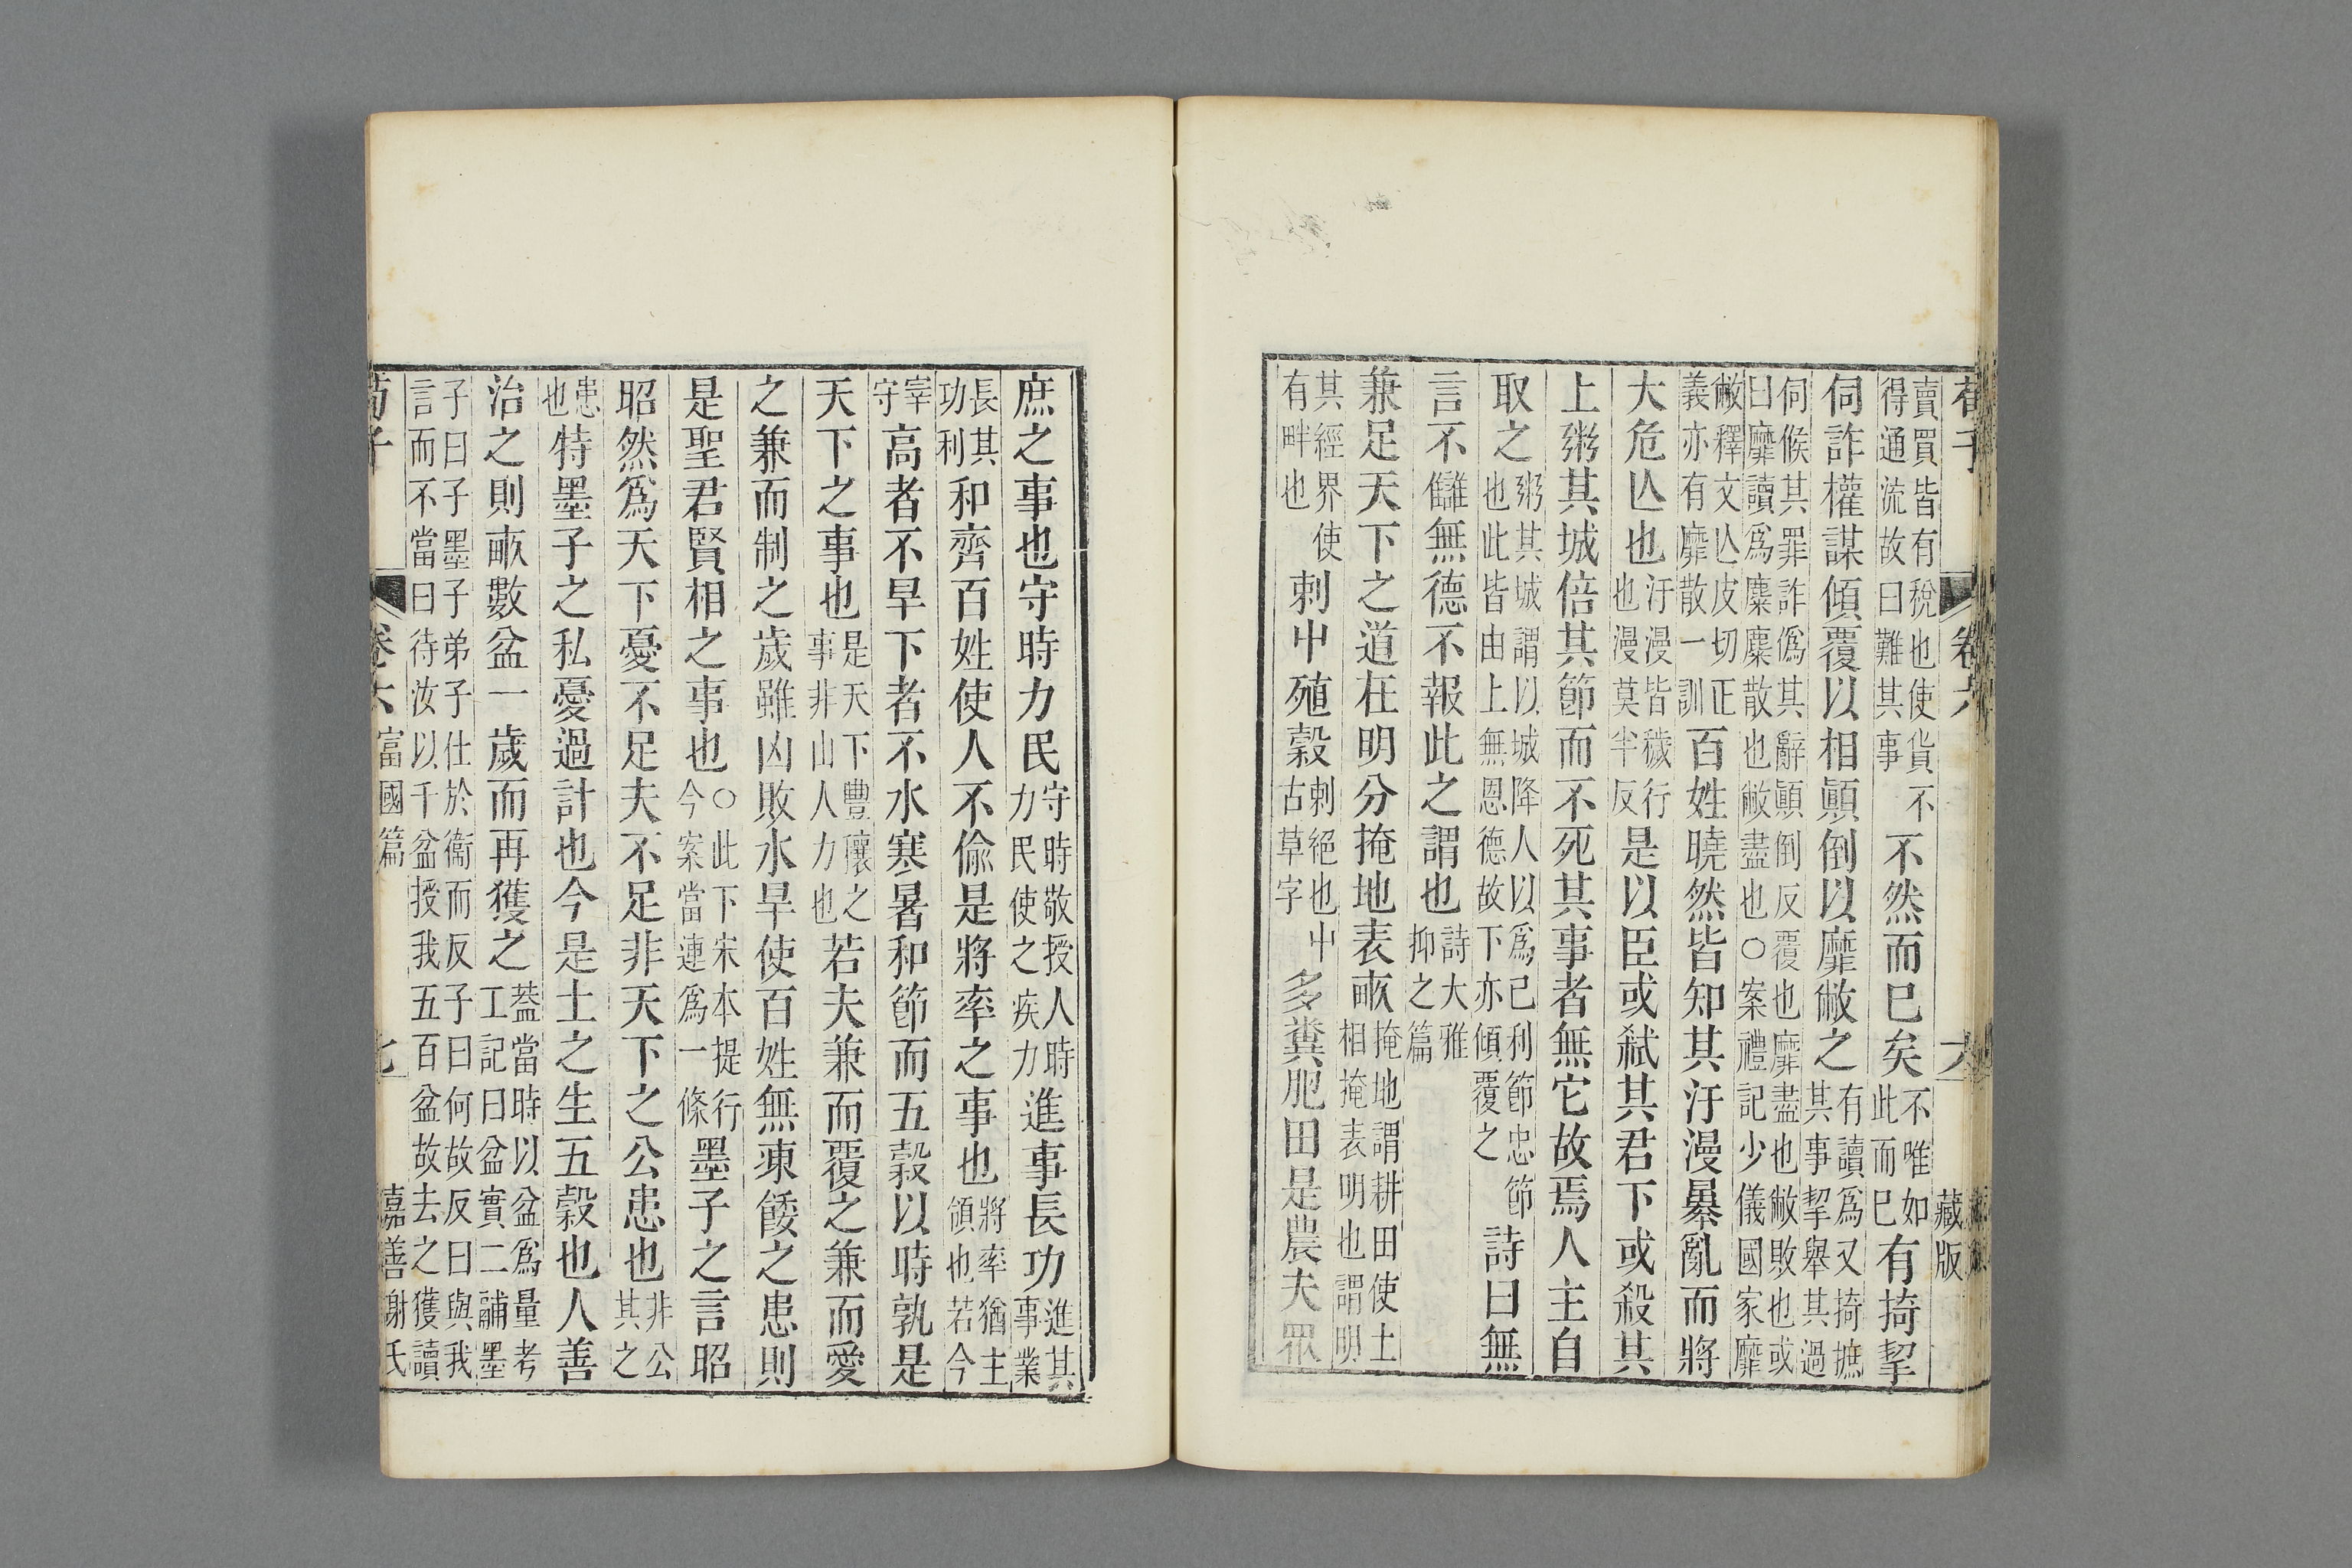 荀子 卷六 六 藏版
賣買皆有稅也使貨不得通流故曰難其事不然而巳矣不唯如此而巳有掎挈
伺詐權謀傾覆以相顚倒以靡敝之有讀爲又掎摭其事挈舉其過
伺候其罪詐僞其辭顚倒反覆也靡盡也敝敗也或曰靡讀爲麋麋散也敝盡也○案禮記少儀國家靡
敝釋文亾皮切正義亦有靡散一訓百姓曉然皆知其汙漫暴亂而將
大危亾也汙漫皆穢行也漫莫半反是以臣或弑其君下或殺其
上粥其城倍其節而不死其事者無它故焉人主自
取之粥其城謂以城降人以爲己利節忠節也此皆由上無恩德故下亦傾覆之詩曰無
言不讎無德不報此之謂也詩大雅抑之篇
兼足天下之道在明分掩地表畝掩地謂耕田使土相掩表明也謂明
其經界使有畔也刺屮殖穀刺絕也屮古草字多糞肥田是農夫眾
庶之事也守時力民守時敬授人時力民使之疾力進事長功進其事業
長其功利和齊百姓使人不偷是將率之事也將率猶主領也若今
宰守高者不旱下者不水寒暑和節而五穀以時孰是
天下之事也是天下豐穰之事非由人力也若夫兼而覆之兼而愛
之兼而制之歲雖凶敗水旱使百姓無凍餧之患則
是聖君賢相之事也○此下宋本提行今案當連爲一條墨子之言昭
昭然爲天下憂不足夫不足非天下之公患也非公其之
患也特墨子之私憂過計也今是土之生五穀也人善
治之則畝數盆一歲而再獲之葢當時以盆爲量考工記曰盆實二鬴墨
子曰子墨子弟子仕於衞而反子曰何故反曰與我言而不當曰待汝以千盆授我五百盆故去之獲讀
荀子 卷六 富國篇 七 嘉善謝氏